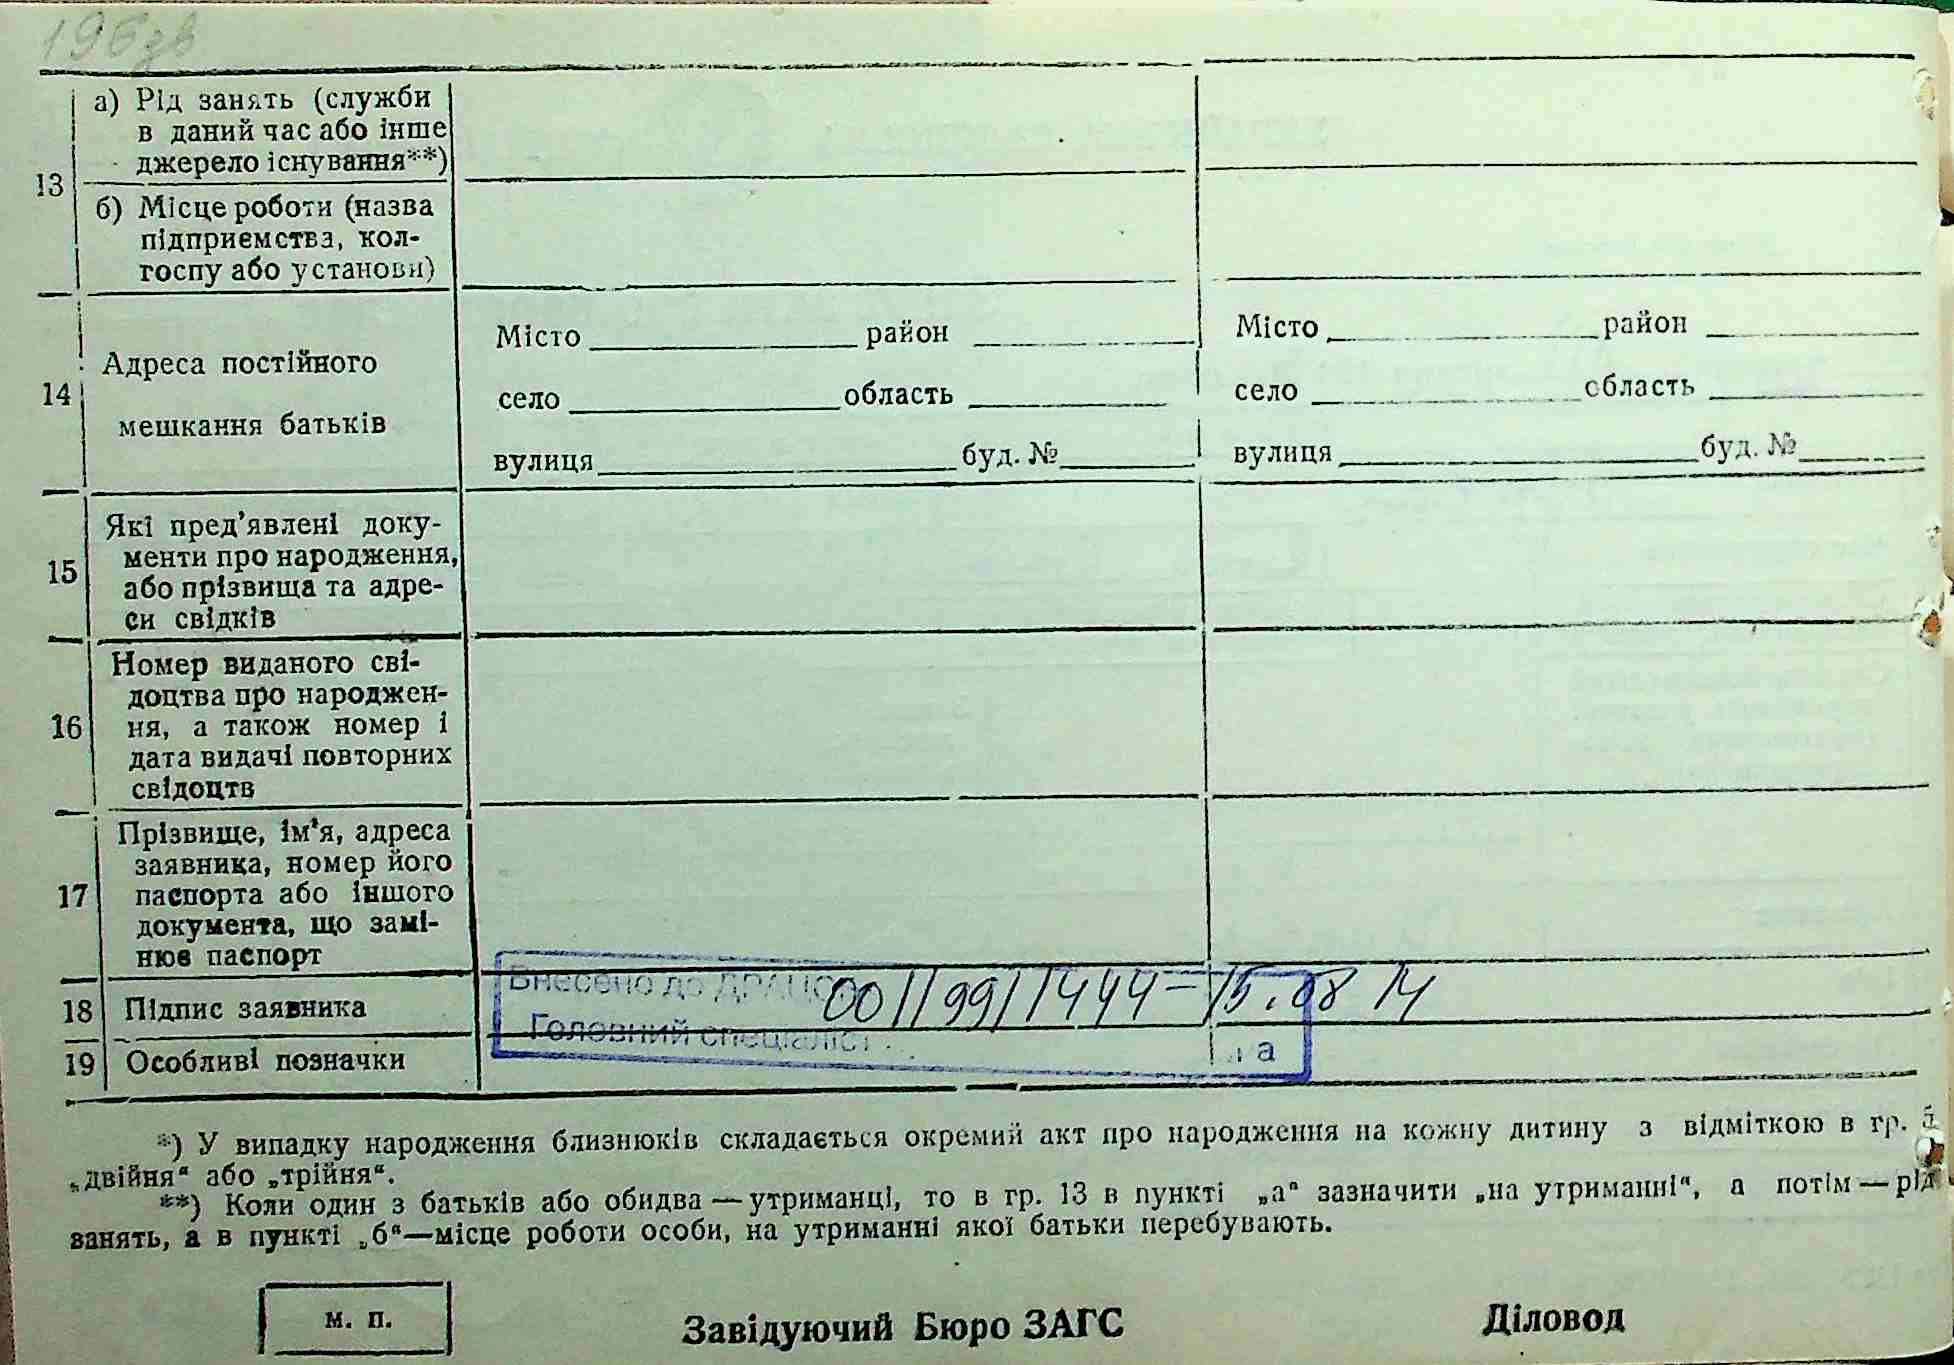 196зв
13
а) Рід занять (служби
в даний час або інше
джерело існування**)
б) Місце роботи (назва
підприємства, кол-
госпу або установи)
14
Адреса постійного
мешкання батьків
Місто район
село область
вулиця буд. №
Місто район
село область
вулиця буд. №
15
Які пред'явлені доку-
менти про народження,
або прізвища та адре-
си свідків
16
Номер виданого сві-
доцтва про народжен-
ня, а також номер і
дата видачі повторних
свідоцтв
17
Прізвище, ім'я, адреса
заявника, номер його
паспорта або іншого
документа, що замі-
нює паспорт
18 Підпис заявника
Внесено до ДРАЦС 00119911444 – 15.08 14
Головний спеціаліст
19 Особливі позначки
*) У випадку народження близнюків складається окремий акт про народження на кожну дитину з відміткою в гр. 5
„двійня“ або „трійня“.
**) Коли один з батьків або обидва — утриманці, то в гр. 13 в пункті „а“ зазначити „на утриманні“, а потім — рід
занять, а в пункті „б“—місце роботи особи, на утриманні якої батьки перебувають.
м. п.
Завідуючий Бюро ЗАГС
Діловод